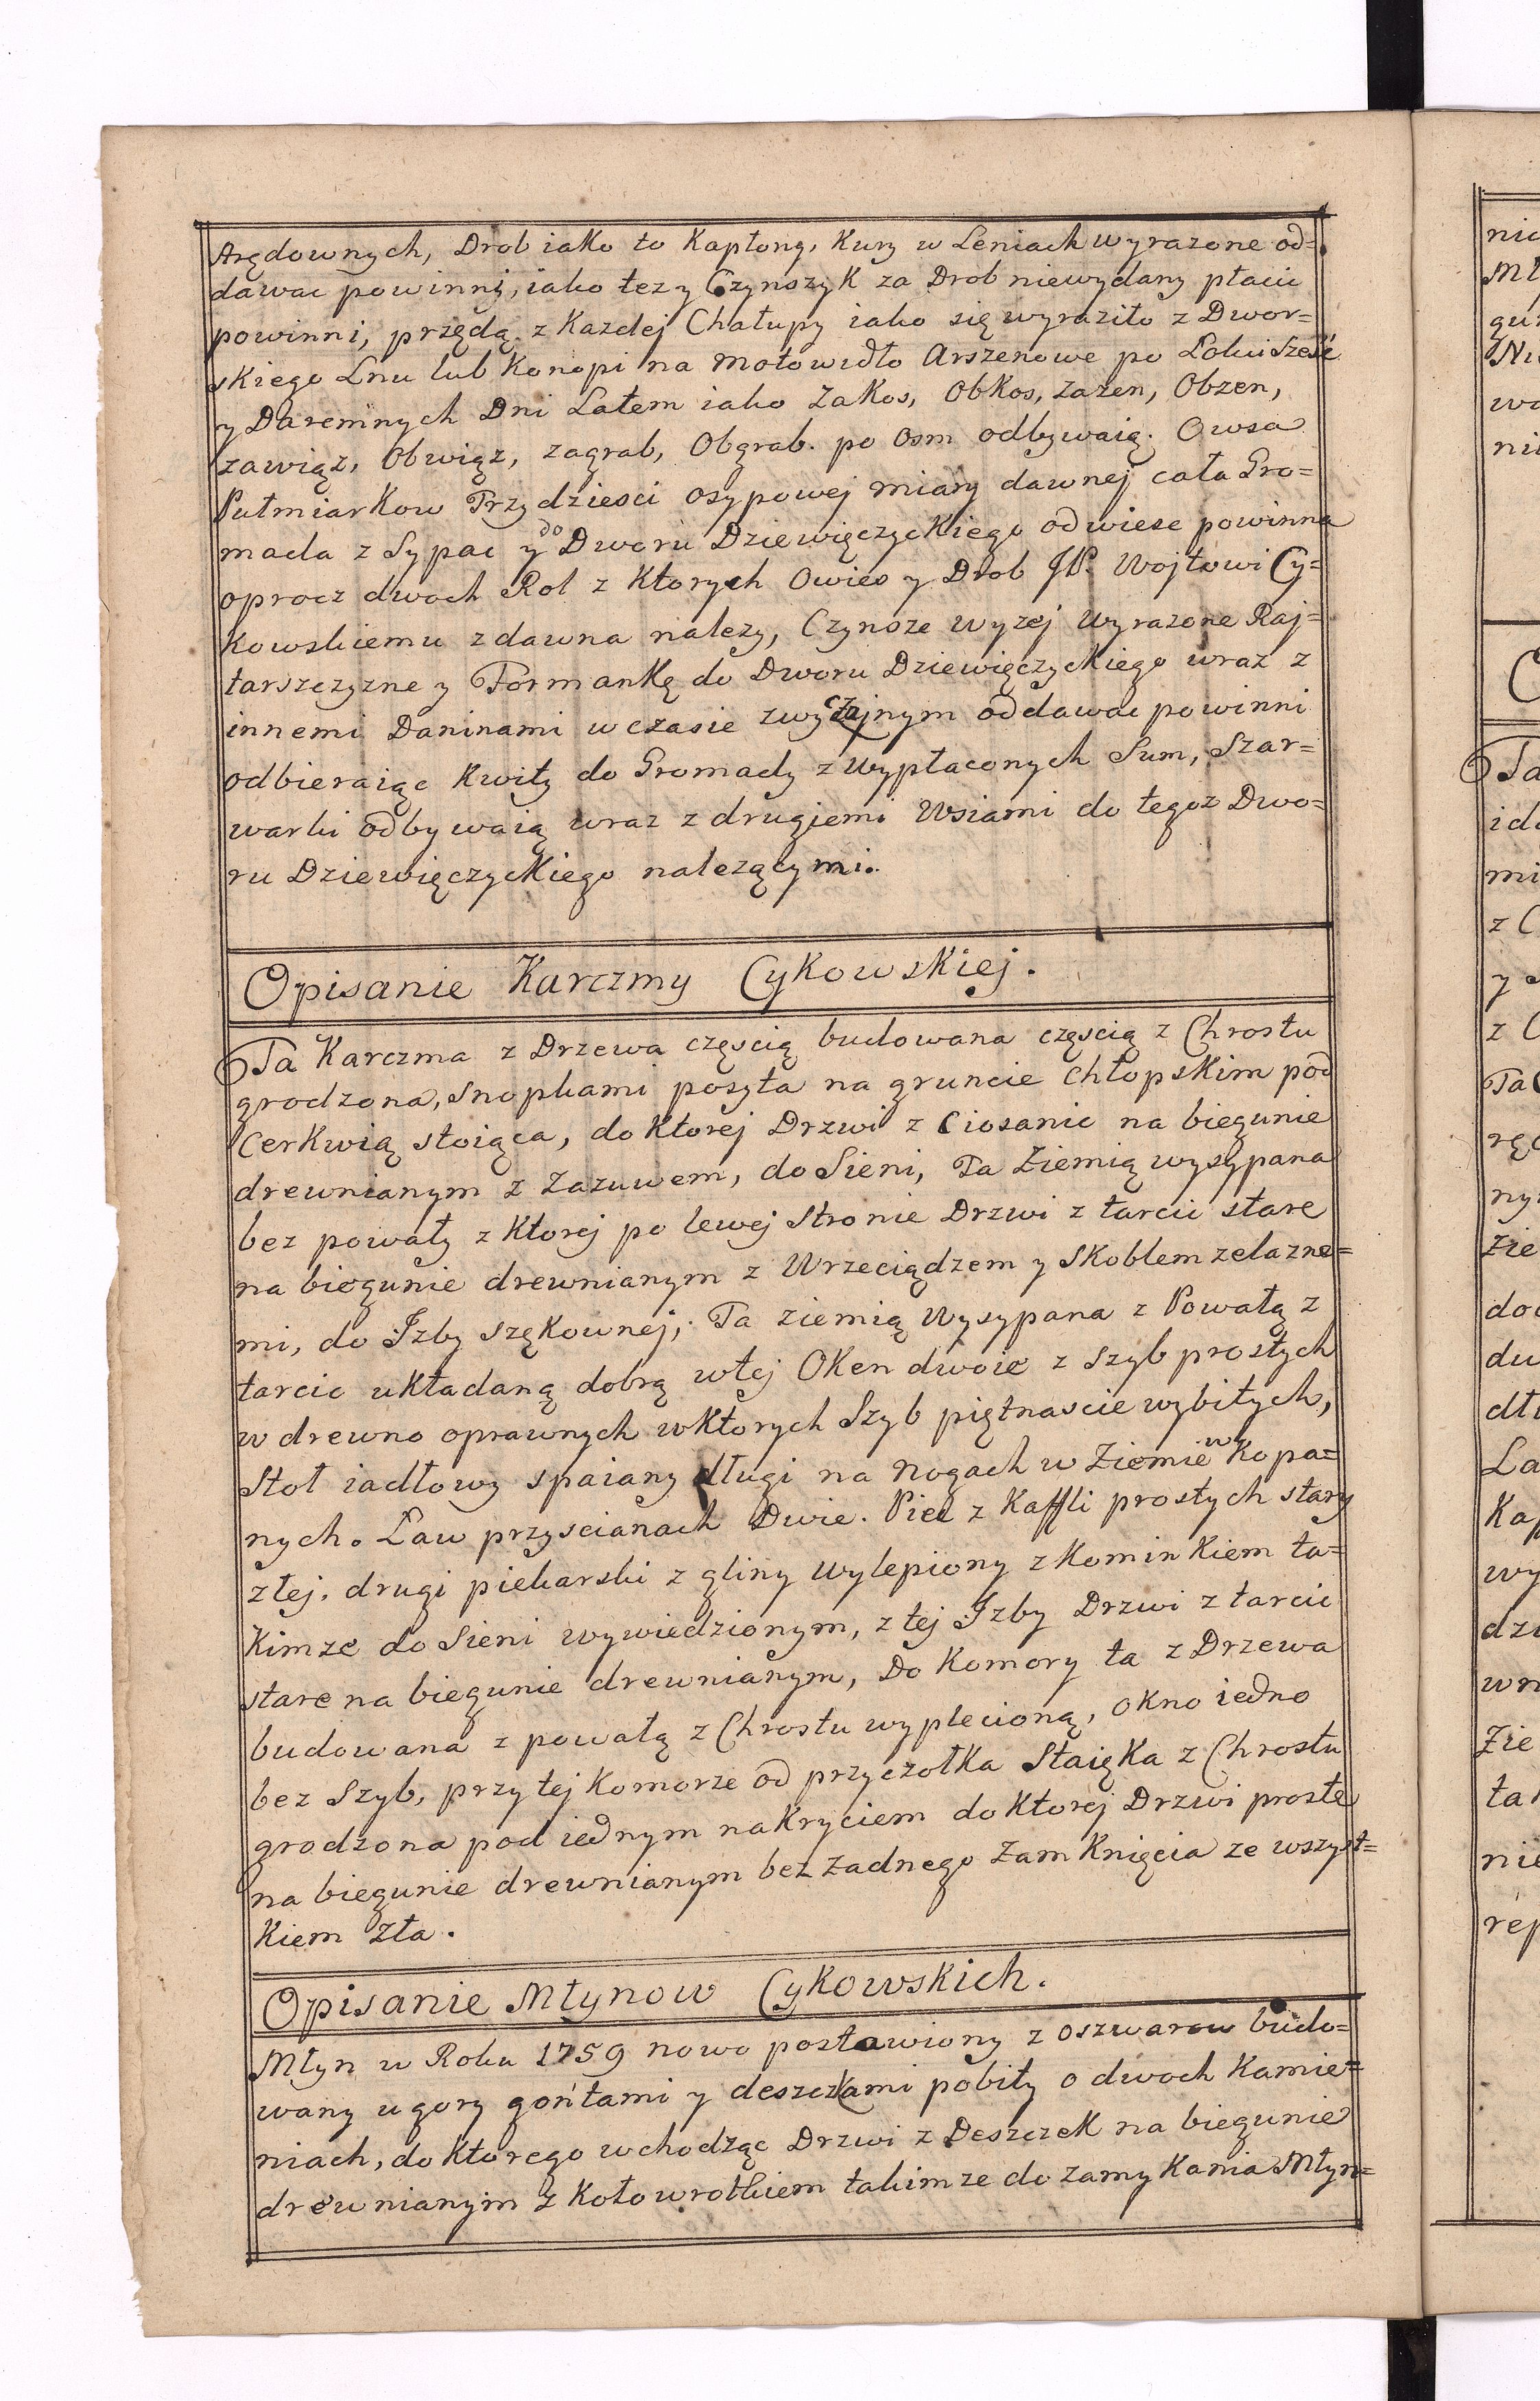 Arędownych, Drob iako to Kapłony, Kury w Leniach wyrazone od=
dawac powinni, iako tez y Czynszyk za Drob niewydany płacic
powinni, przędą z Kazdej Chałupy iako się wyraziło z Dwor=
skiego Lnu lub Konopi na Motowidło Arszenowe po Łokci Szesc
y Daremnych Dni Latem iako Zakos, Obkos, Zazen, Obzen,
zawiąz, Obwiąz, zagrab, Obgrab. po Osm odbywaią. Owsa
Pułmiarkow Trzydziesci osypowej miary dawnej cała Gro=
mada z Sypac y do Dworu Dziewięczyckiego odwiesc powinna
oprocz dwoch Rol z Ktorych Owies y Drob JP. Wojtowi Cy=
kowskiemu zdawna nalezy, Czynsze wyzej wyrazone Raj=
tarszczyzne y Formankę do Dworu Dziewięczyckiego wraz z
innemi Daninami w czasie zwyczajnym oddawac powinni
odbieraiąc Kwity do Gromady z Wypłaconych Sum, Szar=
warki odbywaią wraz z drugiemi Wsiami do tegoz Dwo=
ru Dziewięczyckiego nalezącymi.
Opisanie Karczmy Cykowskiej.
Ta Karczma z Drzewa częscią budowana częscią z Chrostu
grodzona, snopkami poszyta na gruncie chłopskim pod
Cerkwią stoiąca, do Ktorej Drzwi z Ciosanic na biegunie
drewnianym z Zazuwem, do Sieni, Ta Ziemią wysypana
bez powały z Ktorej po lewej Stronie Drzwi z tarcic stare
na biegunie drewnianym z Wrzeciądzem y Skoblem zelazne=
mi, do Izby szękownej; Ta ziemią Wysypana z Powałą z
tarcic układaną dobrą wtej Oken dwoie z szyb prostych
w drewno oprawnych wKtorych Szyb piętnascie wybitych,
Stoł iadłowy spaiany długi na nogach w Ziemie wkopa=
nych. Law przyscianach Dwie. Piec z Kaffli prostych stary
złej. drugi piekarski z gliny wylepiony z Kominkiem ta=
kimze do Sieni wywiedzionym, z tej Izby Drzwi z tarcic
stare na biegunie drewnianym, Do Komory ta z Drzewa
budowana z powałą z Chrostu wyplecioną, okno iedno
bez Szyb, przy tej Komorze od przyczołka Staięka z Chrostu
grodzona pod iednym nakryciem do Ktorej Drzwi proste
na biegunie drewnianym bez zadnego Zamknięcia ze wszyst=
Kiem zła.
Opisanie Młynow Cykowskich.
Młyn w Roku 1759 nowo postawiony z oszwarow budo=
wany ugory gońtami y deszczkami pobity o dwoch Kamie=
niach, do Ktorego wchodząc Drzwi z Deszczek na biegunie
drewnianym z Kołowrotkiem takimze do zamykania Młyn=